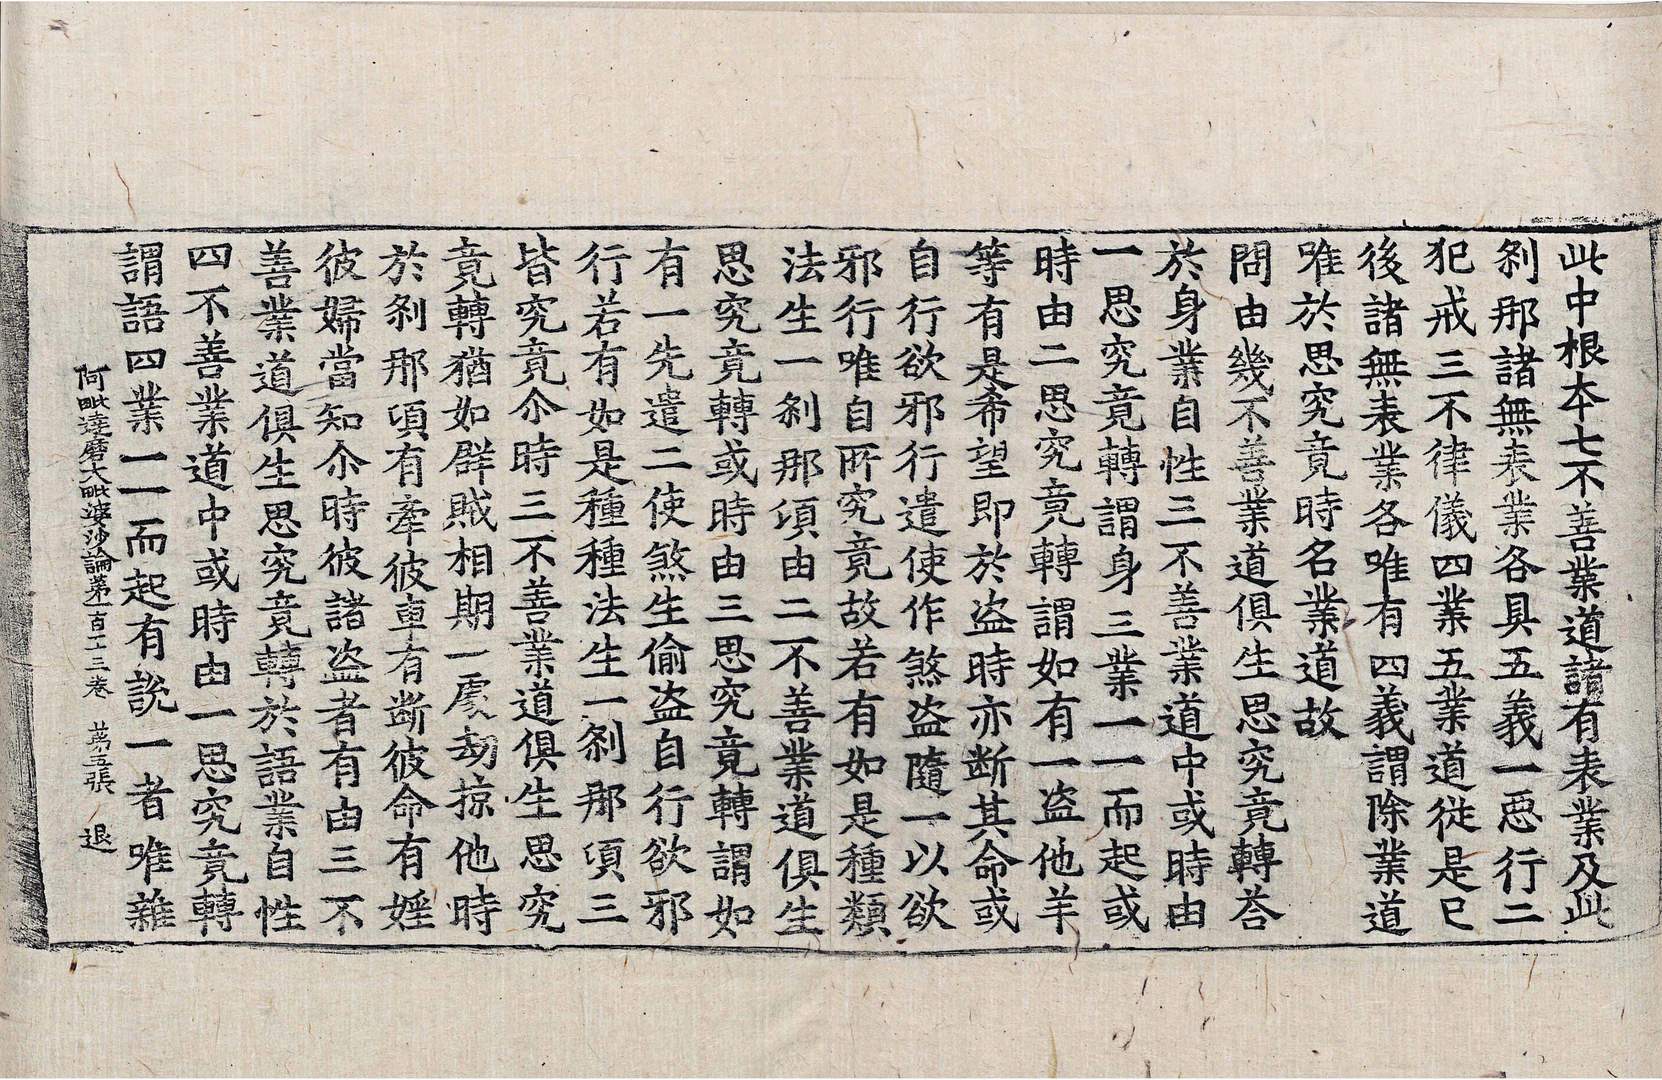 此中根本七不善業道諸有表業及此
刹那諸無表業各具五義一惡行二
犯戒三不律儀四業五業道從是已
後諸無表業各唯有四義謂除業道
唯於思究竟時名業道故
問由幾不善業道俱生思究竟轉荅
於身業自性三不善業道中或時由
一思究竟轉謂身三業一一而起或
時由二思究竟轉謂如有一盜他羊
等有是希望即於盜時亦断其命或
自行欲邪行遣使作煞盜隨一以欲
邪行唯自所究竟故若有如是種類
法生一刹那頃由二不善業道俱生
思究竟轉或時由三思究竟轉謂如
有一先遣二使煞生偷盜自行欲邪
行若有如是種種法生一刹那頃三
皆究竟尒時三不善業道俱生思究
竟轉猶如群賊相期一處劫掠他時
於刹那頃有牽彼車有断彼命有婬
彼婦當知尒時彼諸盜者有由三不
善業道俱生思究竟轉於語業自性
四不善業道中或時由一思究竟轉
謂語四業一一而起有說一者唯雜
阿毗達磨大毗婆沙論第一百一十三卷　苐五張　退